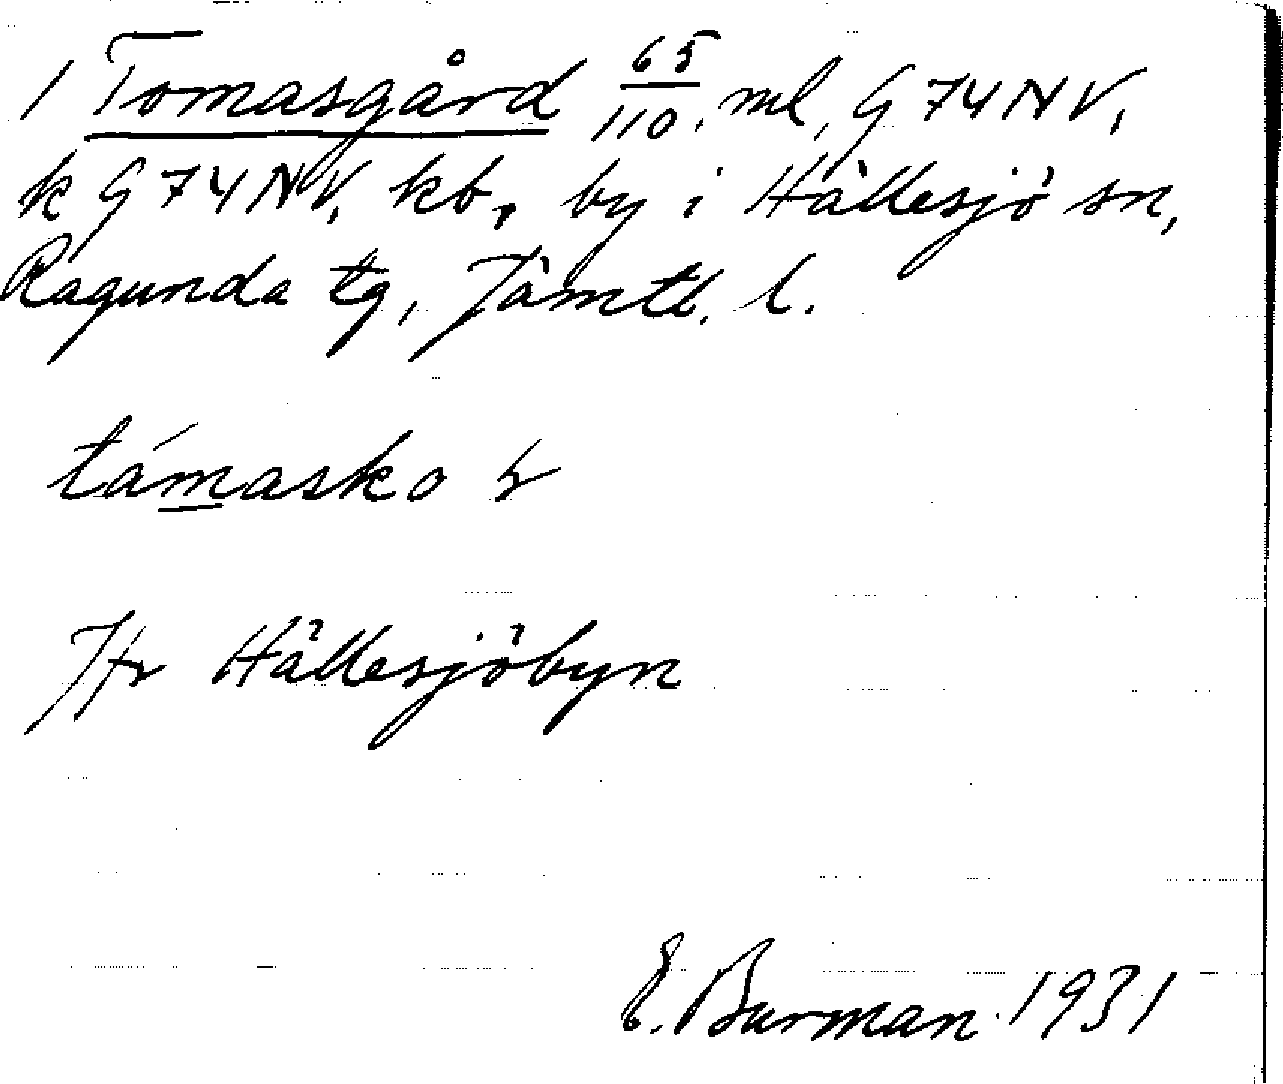 1 Tomasgård 65/110. ml, G 74 NV,
k G 74 NV, kb, by i Hällesjö sn,
Ragunda tg, Jämtl. l.
támasko
Jfr Hällesjöbyn
E. Burman 1931